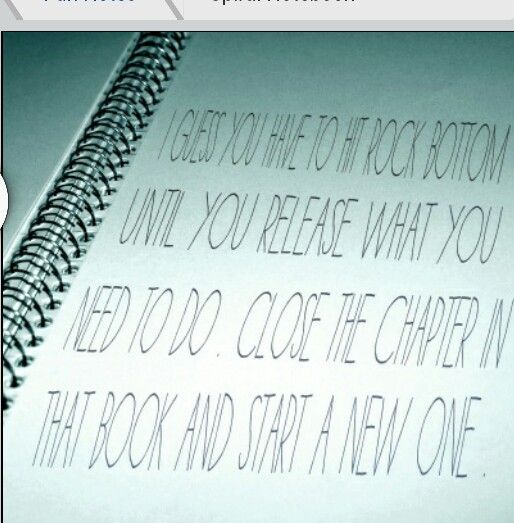 I GUESS YOU HAVE TO HIT ROCK BOTTOM
UNTIL YOU RELEASE WHAT YOU
NEED TO DO. CLOSE THE CHAPTER IN
THAT BOOK AND START A NEW ONE.